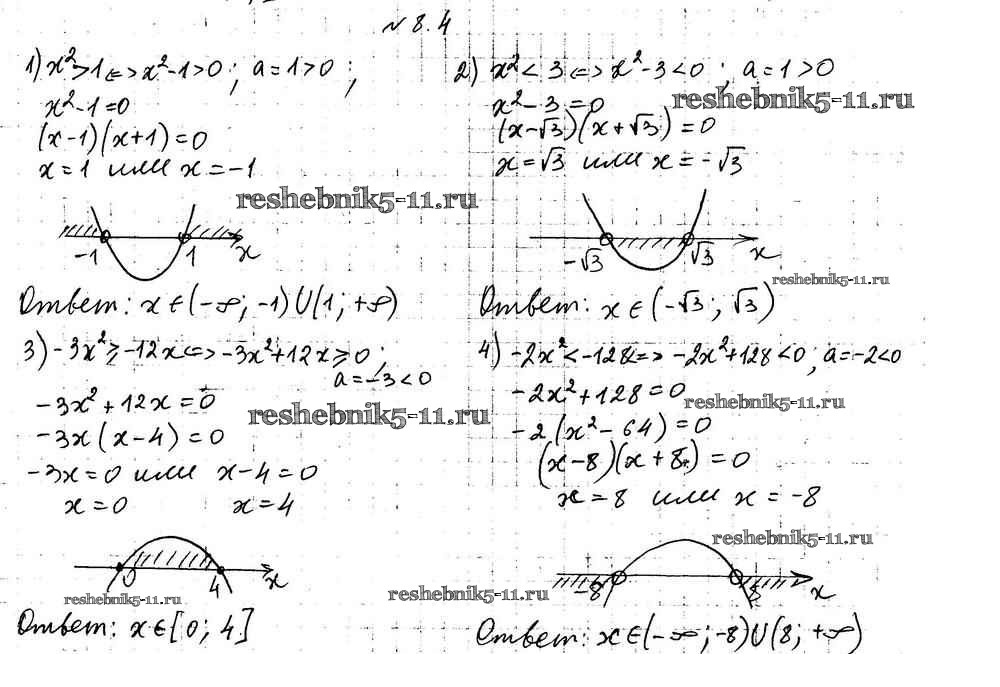 № 8.4
1) x²>1 <=> x²-1>0; a=1>0;
x²-1=0
(x-1)(x+1)=0
x=1 или x=-1
reshebnik5-11.ru
-1 1 x
Ответ: x∈(-∞; -1)∪(1; +∞)
2) x²<3 <=> x²-3<0; a=1>0
reshebnik5-11.ru
x²-3=0
(x-√3)(x+√3)=0
x=√3 или x=-√3
-√3 √3 x
reshebnik5-11.ru
Ответ: x∈(-√3; √3)
3) -3x²≥-12x <=> -3x²+12x≥0;
a=-3<0
-3x²+12x=0
reshebnik5-11.ru
-3x(x-4)=0
-3x=0 или x-4=0
x=0 x=4
0 4 x
reshebnik5-11.ru
Ответ: x∈[0; 4]
4) -2x²<-128 <=> -2x²+128<0; a=-2<0
-2x²+128=0
reshebnik5-11.ru
-2(x²-64)=0
(x-8)(x+8)=0
x=8 или x=-8
reshebnik5-11.ru
-8 8 x
reshebnik5-11.ru
Ответ: x∈(-∞; -8)∪(8; +∞)